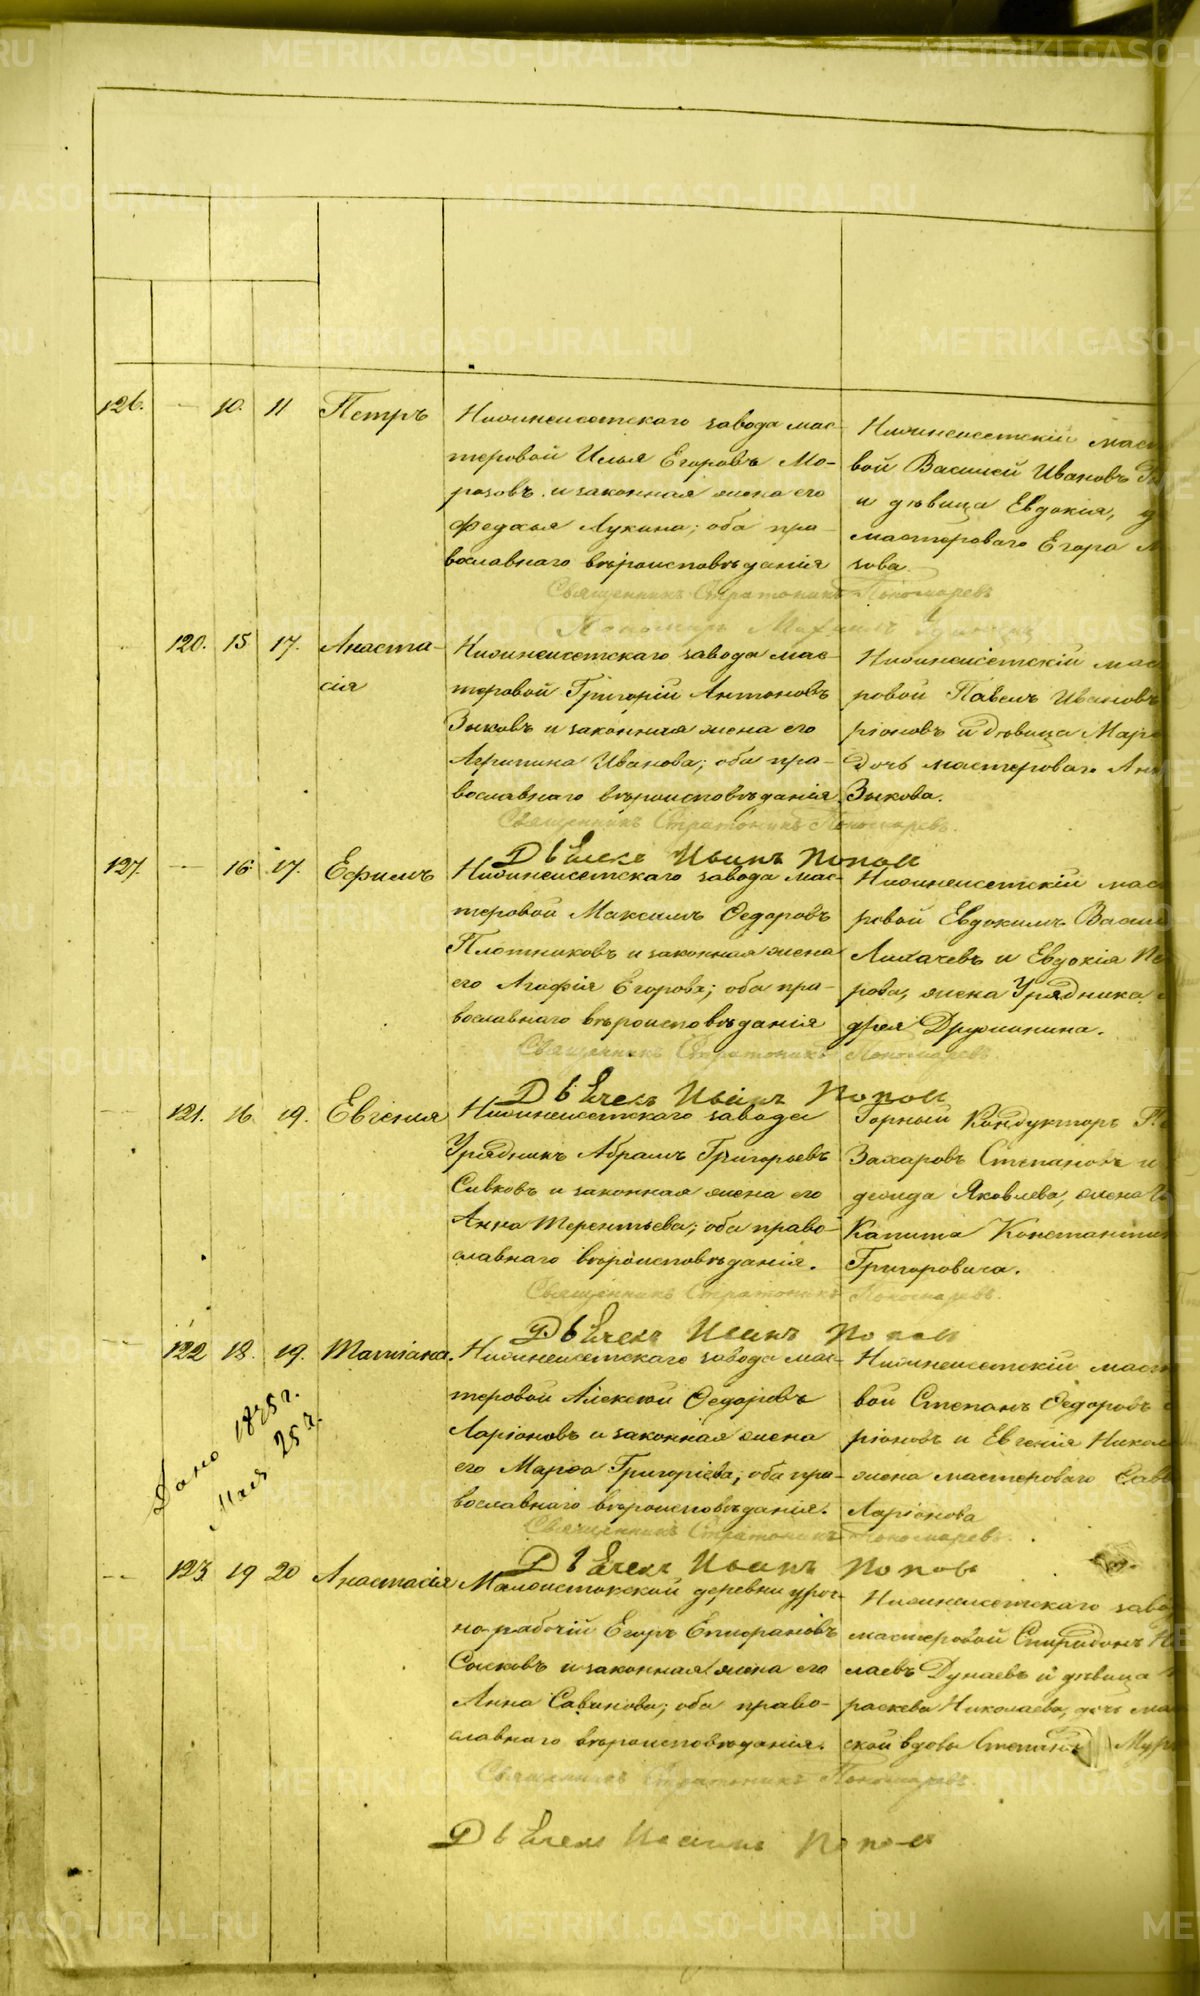 METRIKI.GASO-URAL.RU
126. — 10. 11 Петръ
Нижнеисетскаго завода мас-
теровой Илья Егоровъ Мо-
розовъ и законная жена его
Федосья Лукина; оба пра-
вославнаго вѣроисповѣданія
Нижнеисетскій маст
вой Василей Ивановъ
и дѣвица Евдокія, д
мастероваго Егора М
зова.
Священникъ Стратоникъ Пономаревъ
Пономарь Михаилъ
120. 15 17. Анаста-
сія
Нижнеисетскаго завода мас-
теровой Григорій Антоновъ
Зыковъ и законная жена его
Агрипина Иванова; оба пра-
вославнаго вѣроисповѣданія.
Нижнеисетскій мас
ровой Павелъ Ивановъ
ріоновъ и дѣвица Мар
дочь мастероваго Ан
Зыкова.
Священникъ Стратоникъ Пономаревъ.
Дьячекъ Иоаннъ Попов
127. — 16 17. Ефимъ
Нижнеисетскаго завода мас-
теровой Максимъ Ѳедоровъ
Плотниковъ и законная жена
его Агафія Егорова; оба пра-
вославнаго вѣроисповѣданія
Нижнеисетскій мас
ровой Евдокимъ Васил
Лихачевъ и Евдокія Пе
рова, жена Урядника
дрея Дружинина.
Священникъ Стратоникъ Пономаревъ.
Дьячекъ Иоаннъ Попов
— 121. 16 19. Евгенія
Нижнеисетскаго завода
Урядникъ Абрамъ Григорьевъ
Сивковъ и законная жена его
Анна Терентьева; оба право-
славнаго вѣроисповѣданія.
Горный Кондукторъ П
Захаровъ Степановъ и
Яковлева, жена
Капита Константин
Григоровича.
Священникъ Стратоникъ Пономаревъ.
Дьячекъ Иоаннъ Попов
— 122 18. 19. Татіана.
Нижнеисетскаго завода мас-
теровой Алексѣй Ѳедоровъ
Ларіоновъ и законная жена
его Марѳа Григоріева; оба пра-
вославнаго вѣроисповѣданія.
Нижнеисетскій маст
вой Степанъ Ѳедоровъ
ріоновъ и Евгенія Никол
жена мастероваго Сав
Ларіонова
Дано 1875 г.
Мая 25 ч.
Священникъ Стратоникъ Пономаревъ.
Дьячекъ Иоаннъ Попов
— 123. 19 20 Анастасія
Малоистокской деревни уроч-
но-рабочій Егоръ Епифановъ
Сысковъ и законная жена его
Анна Савинова; оба право-
славнаго вѣроисповѣданія.
Нижнеисетскаго заво
мастеровой Спиридонъ Ни
лаевъ Дунаевъ и дѣвица
раскева Николаева, дочь ма
ской вдовы Степани Мур
Священникъ Стратоникъ Пономаревъ.
Дьячекъ Иоаннъ Попов